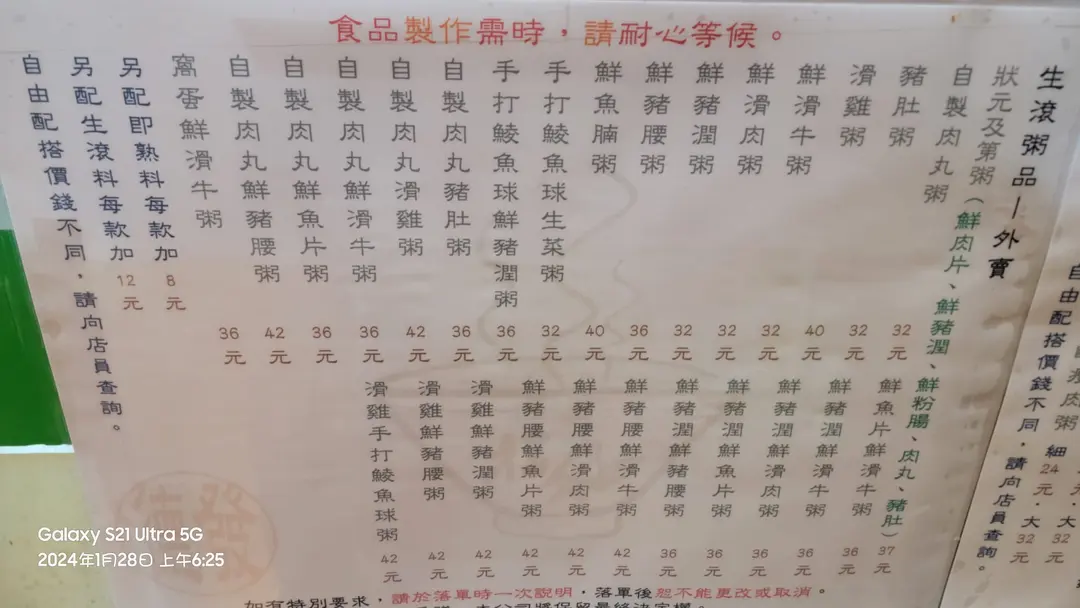 食品製作需時，請耐心等候。
生滾粥品—外賣
狀元及第粥（鮮肉片、鮮豬潤、鮮粉腸、肉丸、豬肚）37元
自製肉丸粥 32元
豬肚粥 32元
滑雞粥 40元
鮮滑牛粥 32元
鮮滑肉粥 32元
鮮豬潤粥 32元
鮮豬腰粥 36元
鮮魚腩粥 40元
手打鯪魚球生菜粥 32元
手打鯪魚球鮮豬潤粥 36元
自製肉丸豬肚粥 36元
自製肉丸滑雞粥 42元
自製肉丸鮮滑牛粥 36元
自製肉丸鮮魚片粥 36元
自製肉丸鮮豬腰粥 42元
窩蛋鮮滑牛粥 36元
鮮魚片鮮滑牛粥 36元
鮮豬潤鮮滑牛粥 36元
鮮豬潤鮮滑牛粥 36元
鮮豬潤鮮滑肉粥 36元
鮮豬潤鮮魚片粥 36元
鮮豬潤鮮豬腰粥 42元
鮮豬腰鮮滑牛粥 42元
鮮豬腰鮮滑肉粥 42元
鮮豬腰鮮魚片粥 42元
滑雞鮮豬潤粥 42元
滑雞鮮豬腰粥 42元
滑雞手打鯪魚球粥 42元
另配即熟料每款加 8元
另配生滾料每款加 12元
自由配搭價錢不同，請向店員查詢。
如有特別要求，請於落單時一次說明，落單後恕不能更改或取消。
自由配搭價錢不同，請向店員查詢。
肉粥 細24元，大32元
大32元
Galaxy S21 Ultra 5G
2024年1月28日 上午6:25